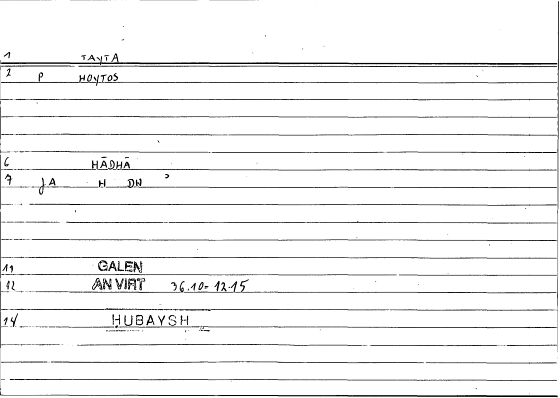 1 TAYTA
2 P HOYTOS
6 HĀDHĀ
7 JA H DN ʾ
11 GALEN
12 AN VIRT 36.10-12.15
14 ḤUBAYSH